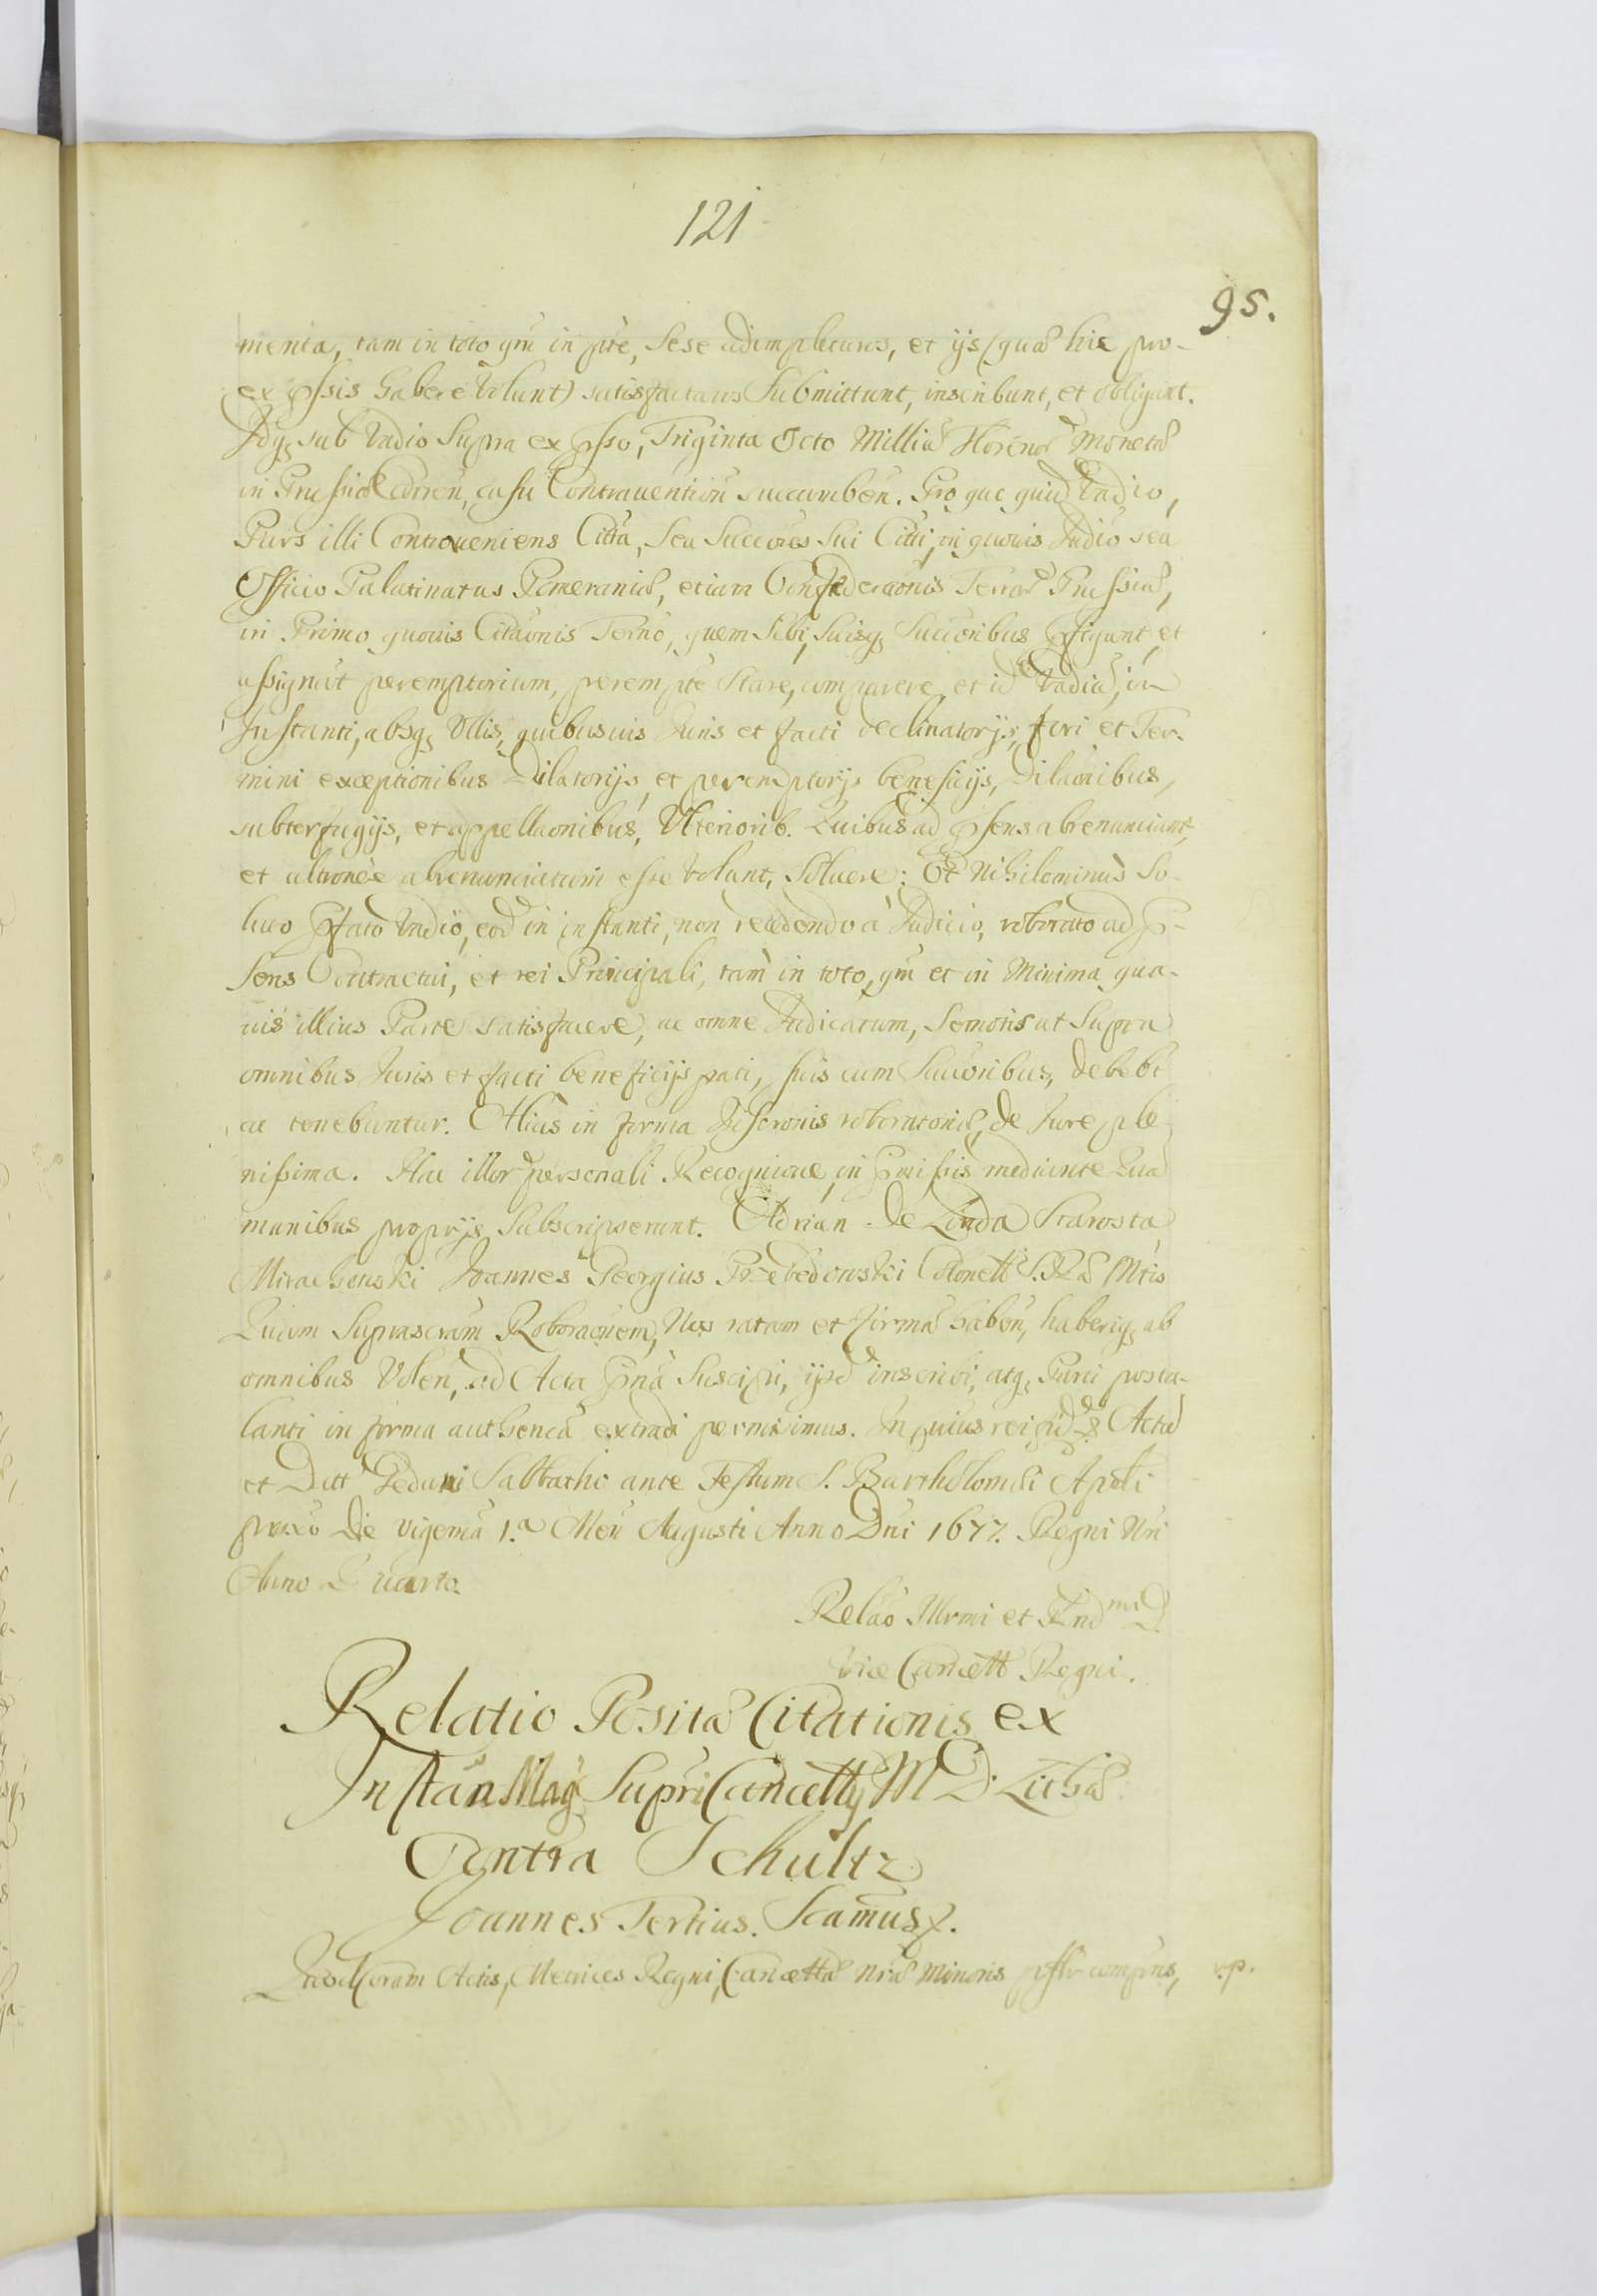 121
95.
menta, tam in toto qm in pte, Sese adimpleturos, et ijs (quæ hic pro
expssis habere Volunt) satisfacturos Submittunt, inscribunt, et obligant.
Idq, sub Vadio Supra expsso, Triginta Octo Milliũ Florenor Monetæ
in Prussia Curren, casu Contrauention succumben. Pro quo quid Vadio,
Pars illi Controueniens Citta, Seu Succres Sui Citti, in quouis Judio seu
Officio Palatinatus Pomeraniæ, etiam Confœderaonis Terrar Prussiæ,
in Primo quouis Citaonis Termo, quem Sibi, Suisq, Succoribus pfigunt, et
assignãt peremptorium, perempte Stare, comparere, et id Vadiũ, in
Instanti, absq, Vllis, quibusuis Juris et facti declinatorijs, fori et Ter-
mini exceptionibus Dilatorijs, et peremptorijs beneficijs, Dilaonibus,
subterfugijs, et appellaonibus, Vlteriorib. Quibus ad psens abrenunciant,
et ultronee abrenunciatum esse Volunt, Soluere: Et Nihilominus So-
luto pfato Vadio, eod in instanti, non recedendo a Judicio, roborato ad p-
sens Contractui, et rei Principali, tam in toto, qm et in Minima qua-
uis illius Parte satisfacere, ac omne Judicatum, Semotis ut Supra
omnibus Juris et facti beneficijs pati, suis cum Succoribus, debebt
ac tenebuntur. Alias in forma Inscronis roboratoriæ, de Jure ple
nissima. Hac illor personali Recognione, in pmissis mediante Quã
manibus proprijs Subscripserunt. Adrian de Linda Starosta
Mirachouski Joannes Georgius Przebedowski Colonell S.R. Mtis
Quam Suprascram Roboraonem, Nos ratam et firmã haben, haberiq, ab
omnibus Volen, ad Acta pnã Suscipi, ijsd inscribi, atq, Parti postu-
lanti in forma authencã extradi permisimus. In cuius rei fid Actũ
et Datt Gedani Sabbatho ante Festum S. Bartholomæi Apoli
proxo Die vigema 1.a Men Augusti Anno Dni 1677. Regni Nri
Anno Quarto.
Relao Illrmi et Rndmi D.
Vice Cancell Regni.
Relatio Positæ Citationis ex
Instan Mag Supri Cancellj M D. Lith
Contra Schultz
Joannes Tertius. Scamus.
Quod Coram Actis, Metrices Regni, Cancellæ nræ Minoris psslr compns, v.p.